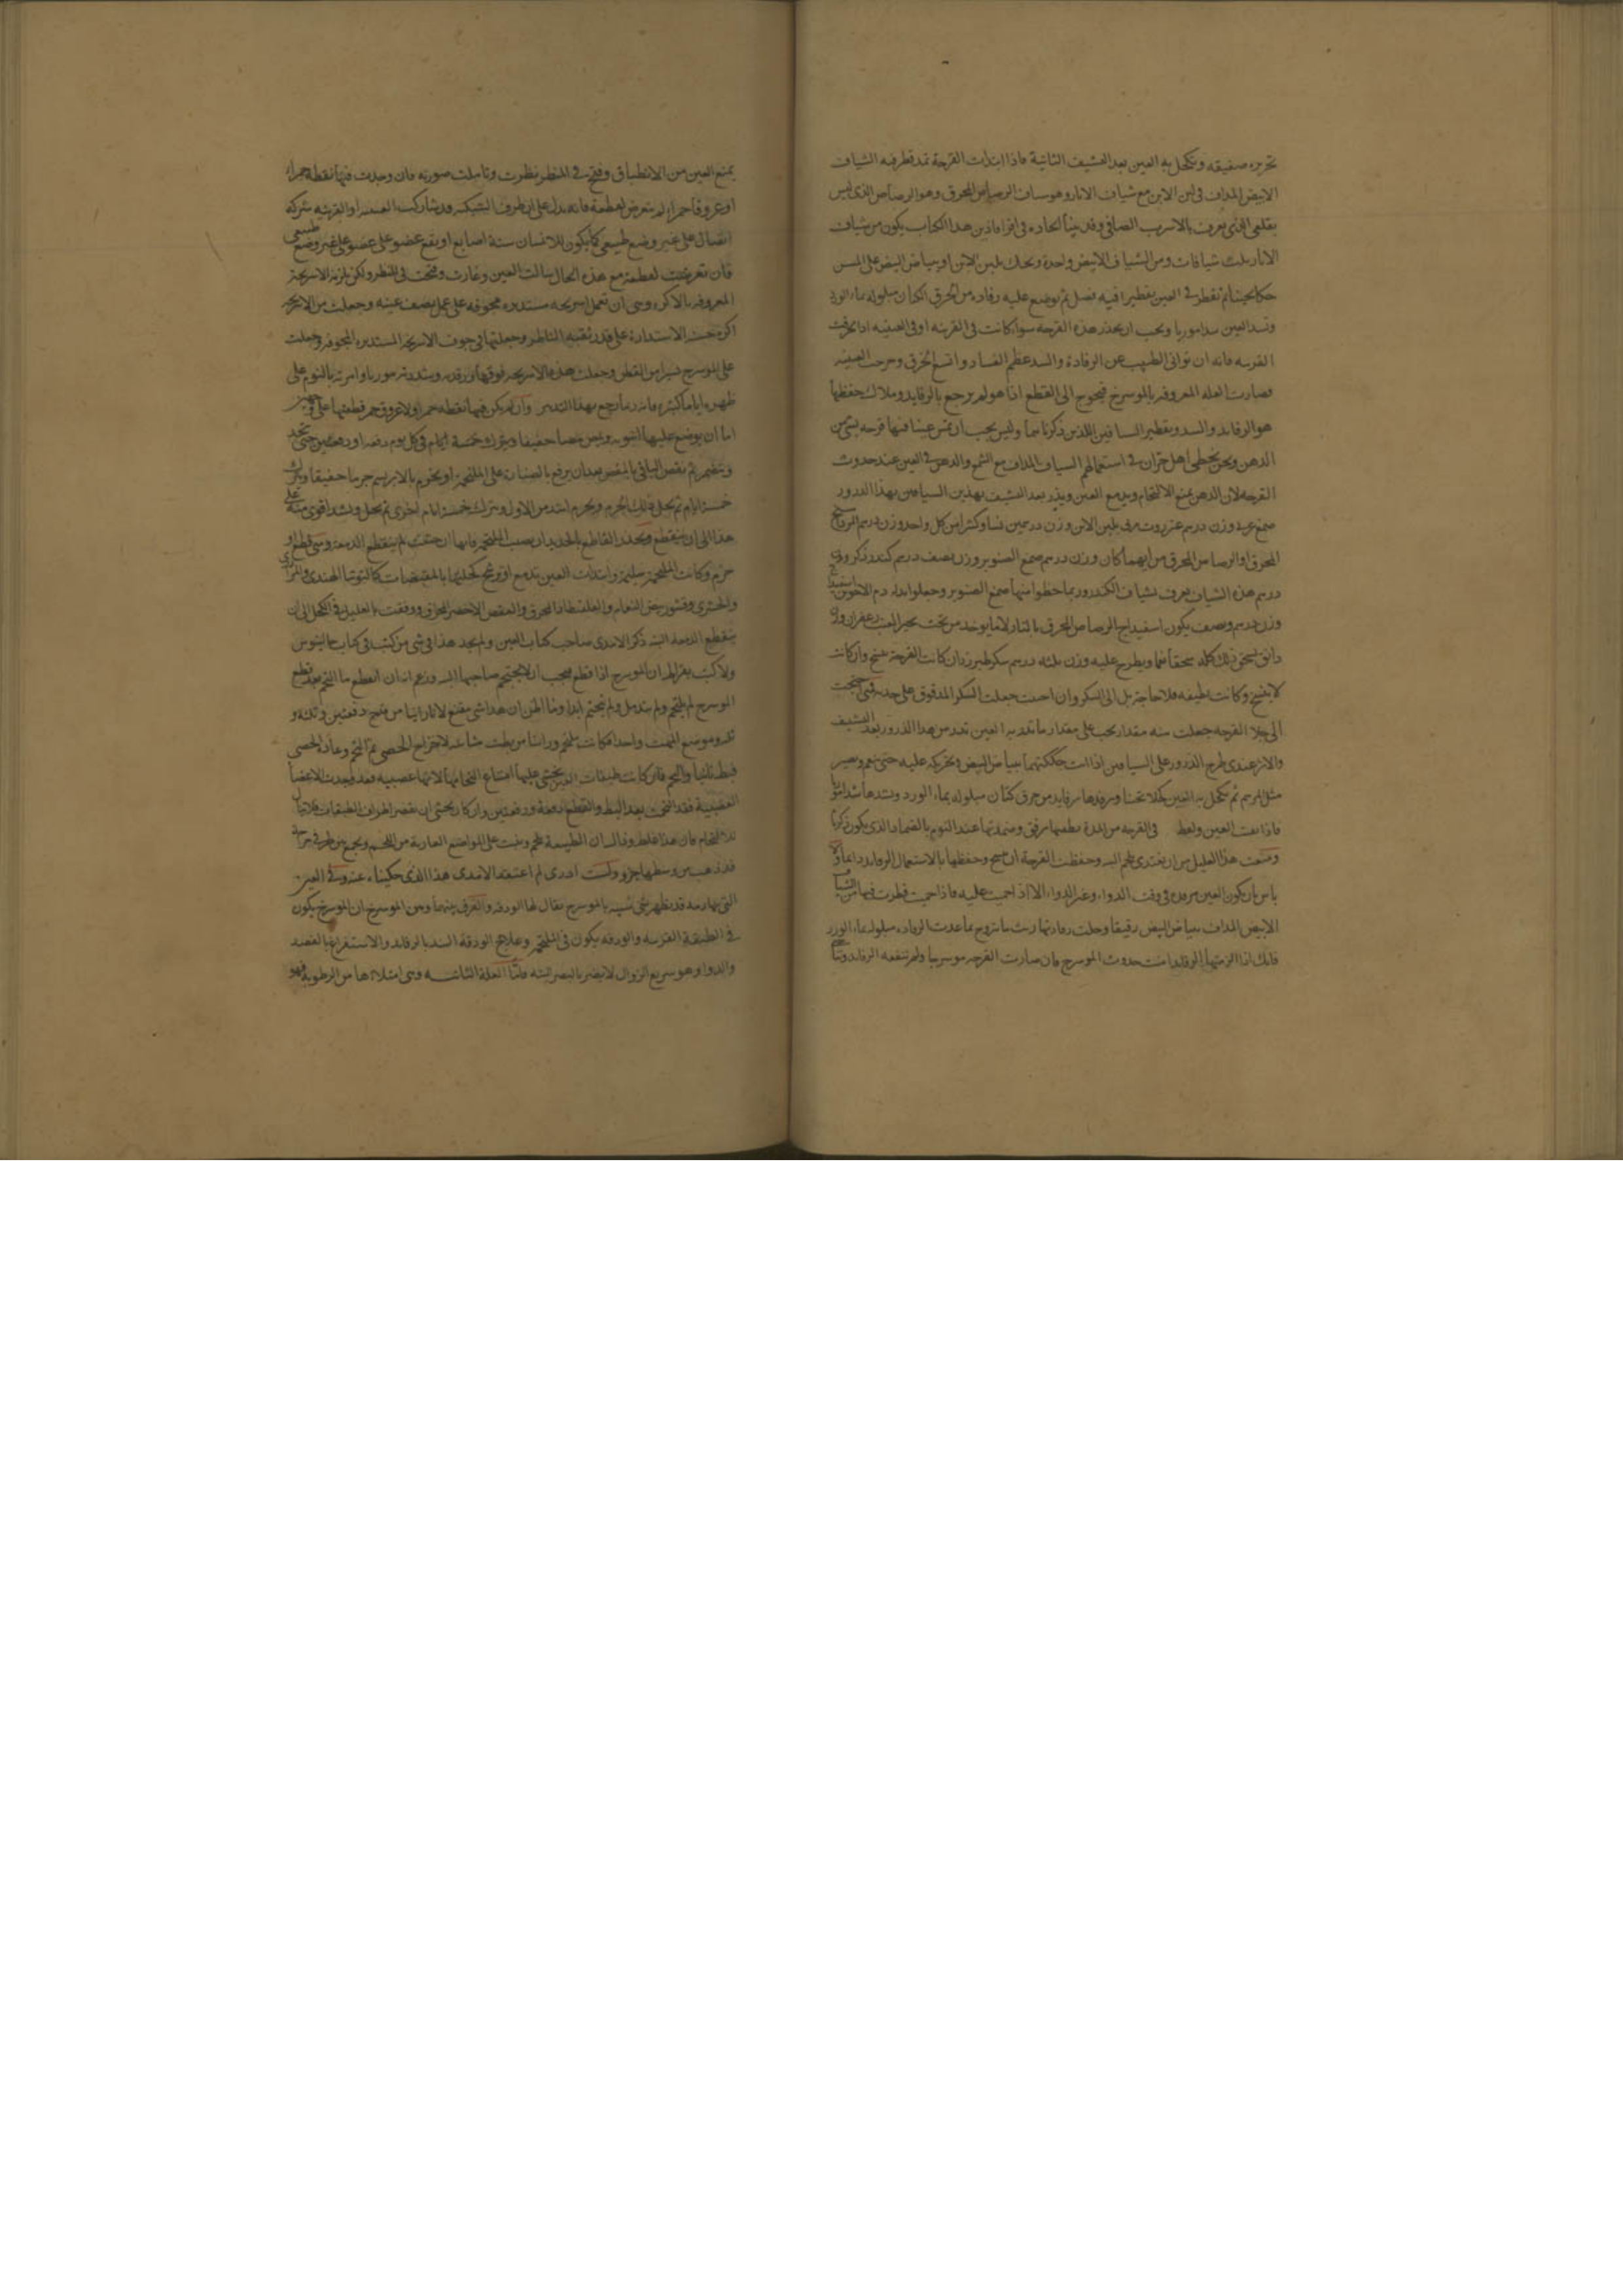 تحريره صفيقه وتكحل به العين بعد الشيف الثانية فاذا ابتدات القرحة تمد قطر فيه الشياف
الابيض المداف في لبن الاتن مع شياف الابار وهو شياف الرصاص المحرق وهو الرصاص الذي ليس
بقلعي الذي يعرف بالاسرب الصافي وقد بينا اتحاده في اقراباذين هذا الكتاب يكون من شياف
الابار ثلث شيافات ومن الشياف الابيض واحدة ويحك بلبن الاتن او بياض البيض على المسن
حكا بحيث ثم تقطر في العين تقطيرا فيه فضل ثم يوضع عليه رفادة من الخرق الكتان مبلوله بماء الورد
وتشد العين شدا موربا ويجب ان يحذر هذه القرحة سواء كانت في القرنيه او في العنبيه اذا انخرقت
القرنيه فانه ان توانى الطبيب عن الرفادة والشد عظم الفساد واتسع الخرق وخرجت العنبيه
فصارت العله المعروفه بالموسرج فيحوج الى القطع اذا هو لم يرجع بالرفايد وملاك حفظها
هو الرفايد والشد وتقطير الشيافين اللذين ذكرناهما وليس يجب ان تمس عينا فيها قرحه بشي من
الدهن ونحن نخطي اهل حران في استعمالهم الشياف المداف مع الشمع والدهن في العين عند حدوث
القرحه لان الدهن يمنع الالتحام ويدمع العين ويذر بعد الشيف بهذين الشيافين بهذا الذرور
صمغ عربي وزن درهم عنزروت مربى بلبن الاتن وزن درهمين نشا وكثيرا من كل واحد وزن درهم
المحرق او الرصاص المحرق من ايهما كان وزن درهم صمغ الصنوبر وزن نصف درهم كندر ذكر وزن
درهم هذه الشياف يعرف بشياف الكندر وربما حطوا منها صمغ الصنوبر وجعلوا بدله دم الاخوين
وزن درهم ونصف يكون اسفيداج الرصاص المحرق بالنار لا ما يوخذ من تحت زعفران وزن
دانق يسحق ذلك كله سحقا ناعما ويطرح عليه وزن ثلثه درهم سكر طبرزد ان كانت القرحة تفتح وان كانت
لا تفتح وكانت نظيفه فلا حاجة بل الى السكر وان احببت جعلت السكر المدقوق على حده فمتى احتجت
الى جلا القرحه جعلت منه مقدار يجب على مقدار ما تدبر به العين تذر من هذا الذرور بعد الشيف
والاثر عندي طرح الذرور على الشيافين اذا انت حككتهما ببياض البيض وتحركه عليه حتى ينعم ويصير
مثل المرهم ثم تكحل به العين كحلا ثخينا وترفدها برفايد من خرق كتان مبلوله بماء الورد وتشدها شدا
فاذا نقت العين ولقط في القرحه من المدة برفق وضمدتها عند النوم بالضماد الذي يكون ذكرناه
ومنعت هذا العليل من ان يغتذي بلحم البته وحفظت القرحة ان تفتح وحفظها بالاستعمال الرفايد دايما ولا
باس بان يكون العين مرفده في وقت الدواء وغير الدواء الا اذا حميت عليه فاذا حميت قطرت فيها من الشياف
الابيض المداف ببياض البيض رقيقا وحلت رفادتها ريث ما تتروح ثم اعدت الرفاده مبلوله بماء الورد
فانك اذا الزمتها الرفايد امنت حدوث الموسرج فان صارت القرحه موسرجا ولم تنفعه الرفايد
يمنع العين من الانطباق وقبح في المنظر نظرت وتاملت صورته فان وجدت فيها نقطه حمراء
او عروقا حمراء لم تتعرض لقطعه فانه يدل على ان طرف الشبكيه قد شاركت العنبيه او القرنيه شركة
اتصال على غير وضع طبيعي كما يكون للانسان ستة اصابع او يقع عضو على عضو على غير وضع طبيعي
فان تعرضت لقطعه مع هذه الحال سالت العين وغارت وقبحت في المنظر ولكن يلزمه الاسربجة
المعروفه بالاكره وهي ان تعمل اسربجه مستديره مجوفه على عمل نصف عينه وجعلت من الاسربجه
اكره حسنة الاستدارة على قدر ثقبه الناظر وجعلتها في جوف الاسربجه المستديره المجوفه وجعلت
على الموسرج شيا من القطن وجعلت هذه الاسربجه فوقها ورفدته وشددته موربا وامرته بالنوم على
ظهره اياما كثيره فانه ربما رجع بهذا التدبير وان لم يكن فيها نقطه حمراء ولا عروق حمر قطعتها على وجهين
اما ان يوضع عليها التوبه ويقبض قبضا خفيفا ويترك خمسة ايام في كل يوم دفعه او دفعتين حتى
وينضم ثم تقص الباقي بالمقص بعد ان يرفع بالصنارة على الملتحمة او يخرم بالابريسم خرما خفيفا ويترك
خمسة ايام ثم يحل ذلك الخرم ويخرم اشد من الاول ويترك خمسة ايام اخرى ثم يحل ويشد اقوى منه على
هذا الى ان ينقطع وليحذر القاطع بالحديد ان يصيب الملتحمه فانها ان جنفت لم ينقطع الدمعة ومتى قطع او
خرم وكانت الملتحمة سليمة وابتدات العين تدمع او توسخ كحلتها بالمقبضات كالتوتيا الهندي
والحشري وقشور بيض النعام والقلقطار المحرق والعفص الاخضر المحرق ورفقت بالعليل في الكحل الى ان
ينقطع الدمعه البته ذكر الامدي صاحب كتاب العين ولم نجد هذا في شي من كتب في كتاب جالينوس
ولا كتب بقراط ان الموسرج اذا قطع فيجب ان لا يحتجم صاحبها البته وزعم انه ان انقطع ما التحم بعد قطع
الموسرج لم يلتحم ولم يندمل ولم يختم ابدا وما اظن ان هذا شي مقنع لانا راينا من بضع دفعتين وثلثه
في موضع البضعت واحد فكانت تلتحم وراينا من بطت مثانته لاخراج الحصى ثم التحم وعاد الحصى
فبط ثانيا والتحم فان كانت طبقات العين يخشى عليها امتناع التحامها لانها عصبيه فقد وجدت الاعضا
العصبية فقد التحمت بعد البط والقطع دفعة ودفعتين وان كان يخشى ان يقصر اطراف الطبقات فلا
للالتحام فان هذا غلط وقال ان الطبيعة تلحم وتنبت على المواضع العارية من اللحم ويجمع بين طرفي جراحة
قد ذهب من وسطها جزو ولست ادري لم اعتقد الامدي هذا الذي حكيناه عنه وفي العين
التي بها رمد قد يظهر شي شبيه بالموسرج يقال لها الودقه والفرق بينها وبين الموسرج ان الموسرج يكون
في الطبقة القرنيه والودقه يكون في الملتحم وعلاج الودقة الشد بالرفايد والاستفراغ بالفصد
والدوا وهو سريع الزوال لا يضر بالبصر البته فاما العلة الثانيه وهي امتلاءها من الرطوبه فهو